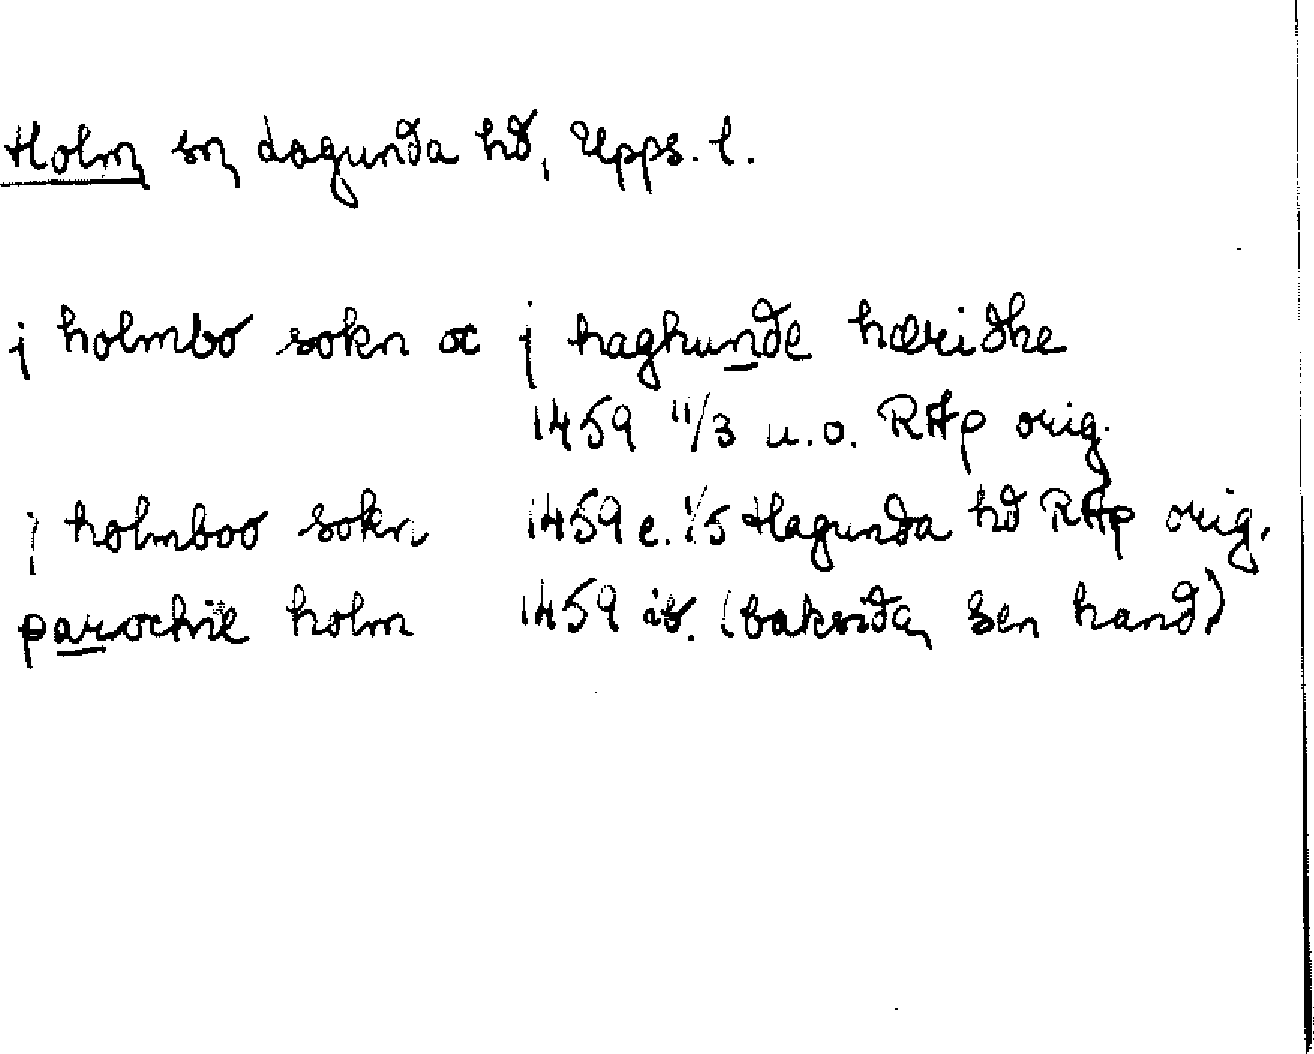 Holm sn Lagunda hd, Upps. l.
j holmbo sokn oc j haghunde hæridhe
1459 11/3 u.o. RAp orig.
j holmboo sokn 1459 e. 1/5 Hagunda hd RAp orig.
parochie holm 1459 ib. (baksida, sen hand)